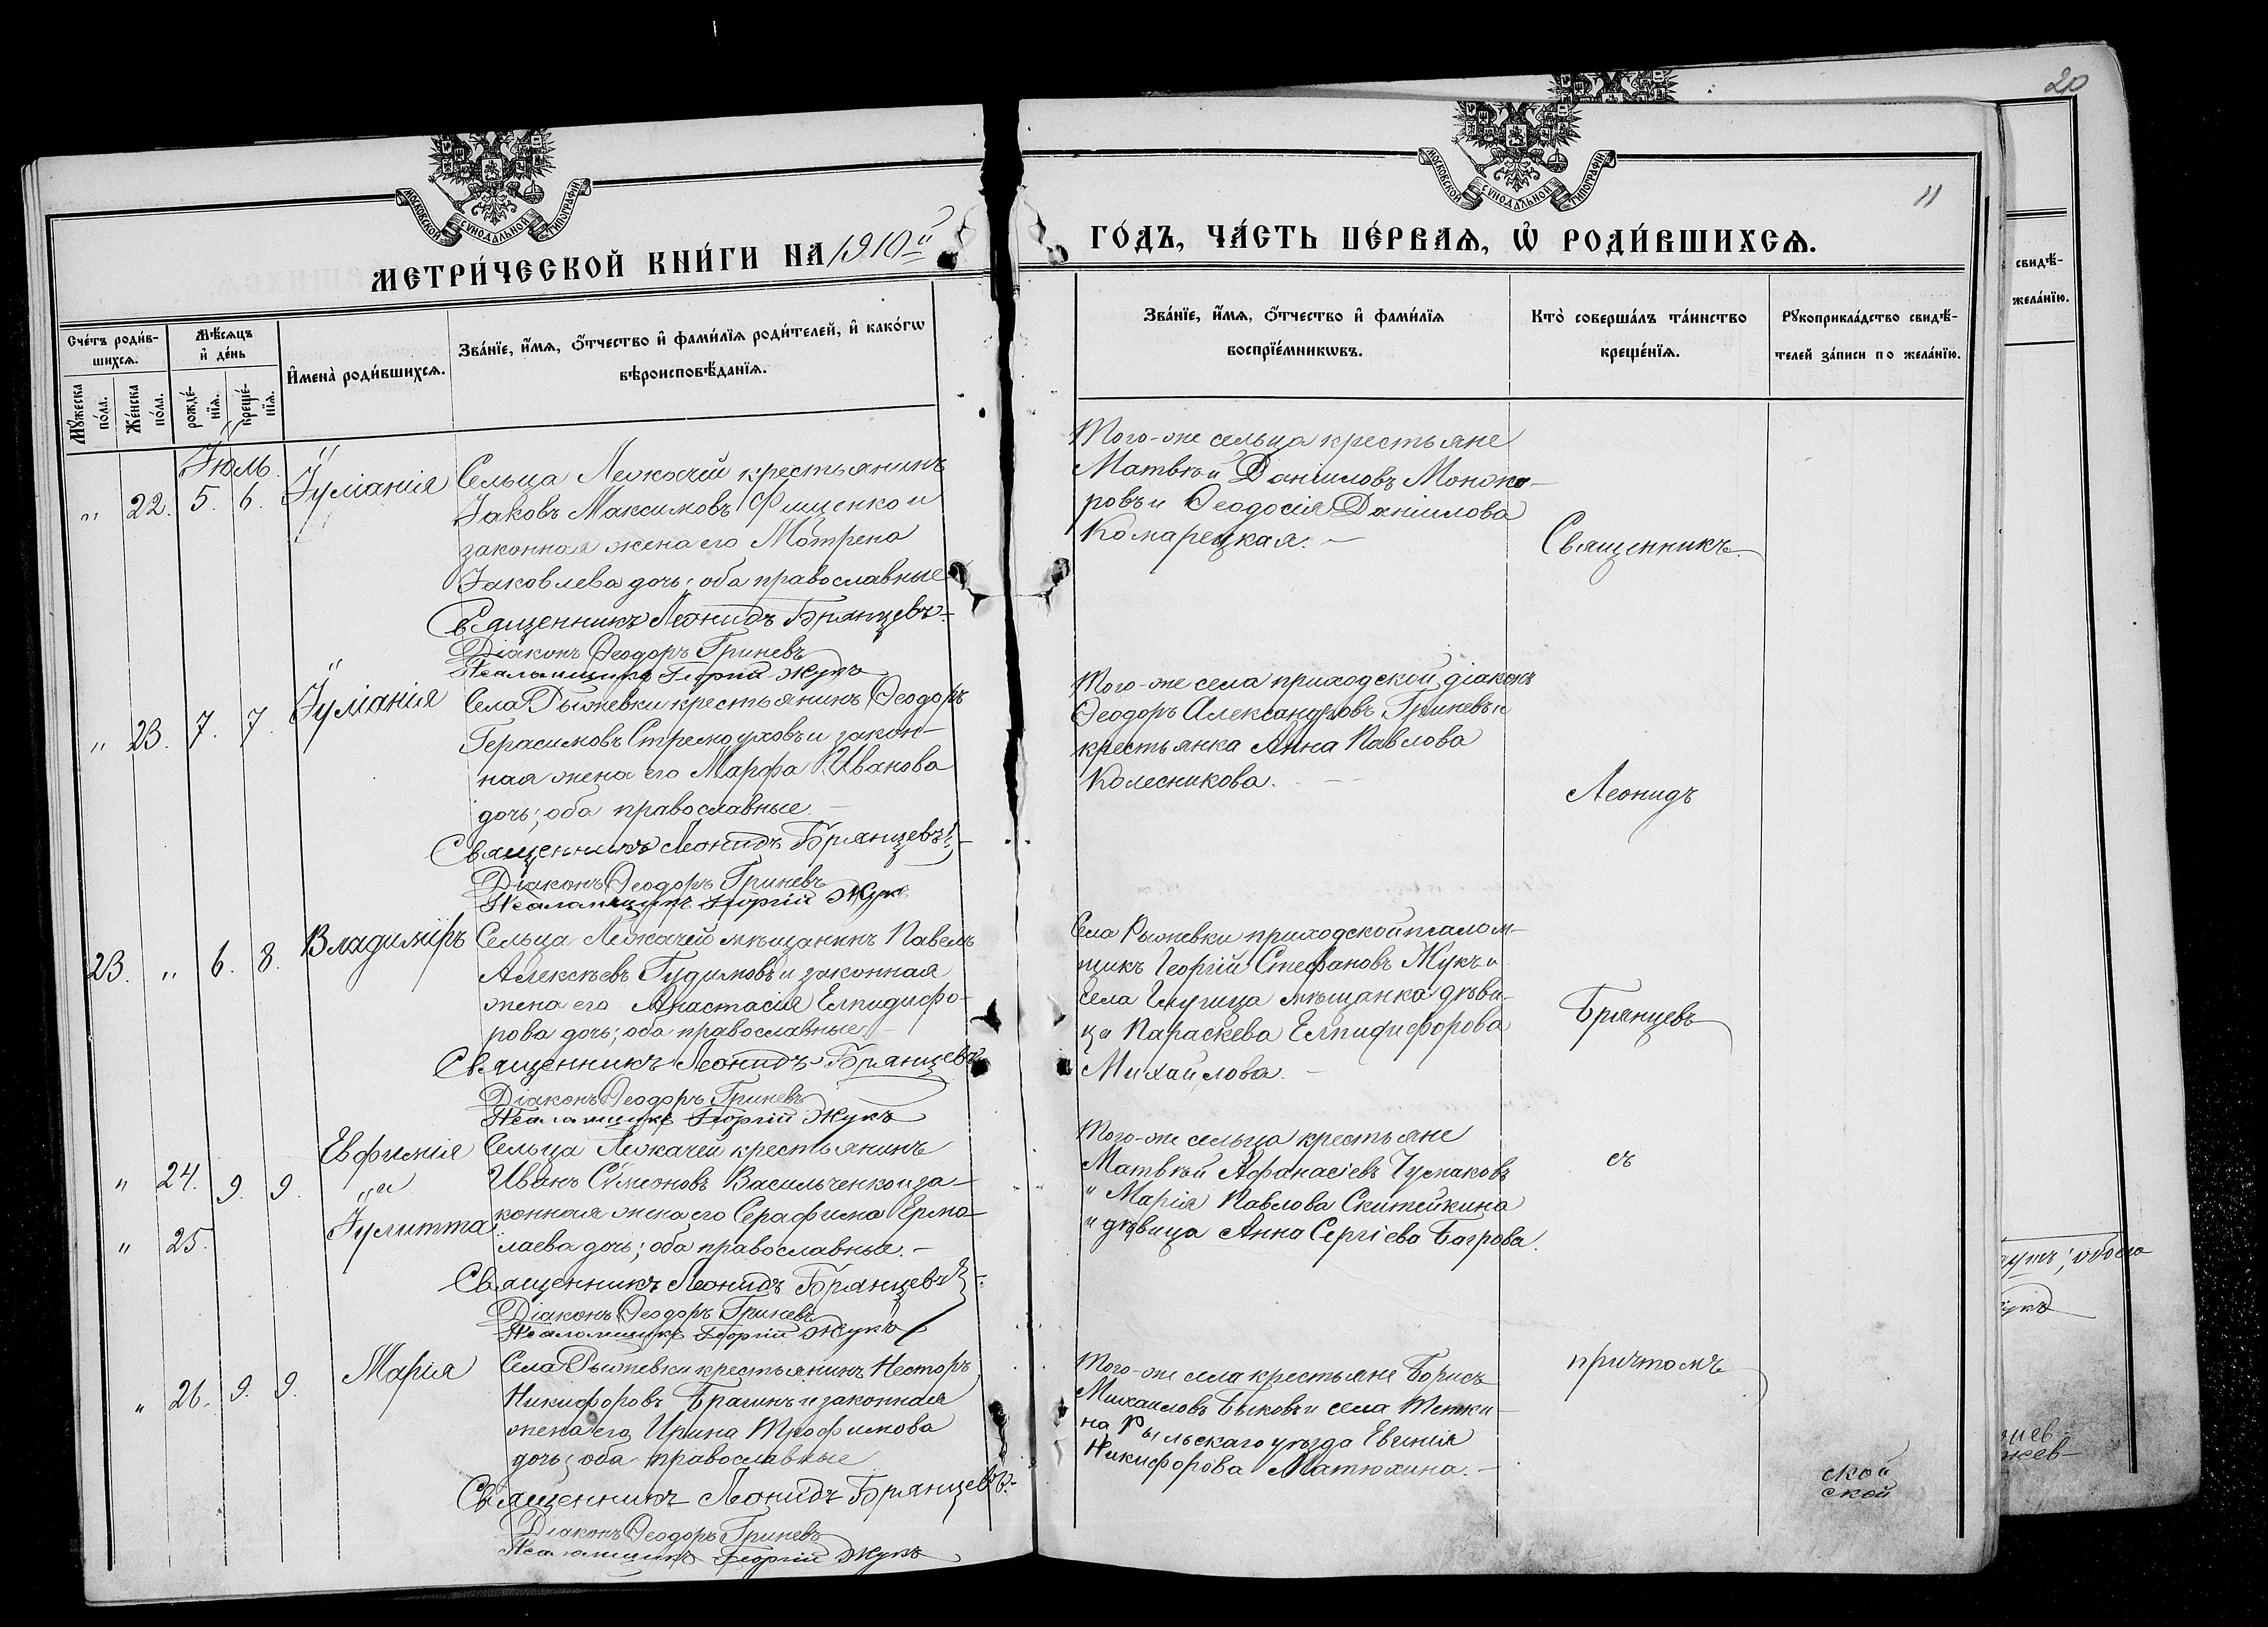 20
МОСКОВСКОЙ СѴНОДАЛЬНОЙ ТИПОГРАФІИ
МОСКОВСКОЙ СѴНОДАЛЬНОЙ ТИПОГРАФІИ
11
МЕТРИ́ЧЕСКОЙ КНИ́ГИ НА 1910й
ГО́ДЪ, ЧА́СТЬ ПЕ́РВАѦ, Ѡ҆ РОДИ́ВШИХСѦ.
Сче́тъ роди́в-
шихсѧ.
Мꙋ́жеска по́ла.
Же́нска по́ла.
Мѣ́сѧцъ
и҆ де́нь
рожде́-
нїѧ.
креще́-
нїѧ.
И҆мена̀ роди́вшихсѧ.
Зва́нїе, и҆́мѧ, ѻ҆́тчество и҆ фами́лїѧ роди́телей, и҆ како́гѡ
вѣроисповѣ́данїѧ.
Зва́нїе, и҆́мѧ, ѻ҆́тчество и҆ фами́лїѧ
воспрїе́мникѡвъ.
Кто̀ соверша́лъ та́инство
креще́нїѧ.
Рꙋкоприкла́дство свидѣ́-
телей за́писи по жела́нїю.
свидѣ́-
жела́нїю.
Іюль.
" 22. 5. 6. Іуліанія
Сельца Лежачей крестьянинъ
Іаковъ Максимовъ Фищенко и
законная жена его Мотрена
Іаковлева дочь; оба православные
Священникъ Леонидъ Брянцевъ.
Діаконъ Ѳеодоръ Гриневъ
Псаломщикъ Георгій Жукъ
Того-же сельца крестьяне
Матвѣй Даніиловъ
ровъ и Ѳеодосія Даніилова
Комарецкая.
Священникъ
" 23. 7. 7. Іуліанія
Села Рыжевки крестьянинъ Ѳеодоръ
Герасимовъ Стремоуховъ и закон-
ная жена его Марфа Иванова
дочь; оба православные
Священникъ Леонидъ Брянцевъ
Діаконъ Ѳеодоръ Гриневъ
Псаломщикъ Георгій Жукъ
Того-же села приходской діаконъ
Ѳеодоръ Александровъ Гриневъ и
крестьянка Анна Павлова
Колесникова.
Леонидъ
23. " 6. 8. Владиміръ
Сельца Лежачей мѣщанинъ Павелъ
Алексѣевъ Гудимовъ и законная
жена его Анастасія Елпидифо-
рова дочь; оба православные
Священникъ Леонидъ Брянцевъ
Діаконъ Ѳеодоръ Гриневъ
Псаломщикъ Георгій Жукъ
Села Рыжевки приходской псалом-
щикъ Георгій Стефановъ Жукъ и
села мѣщанка дѣви-
ца Параскева Елпидифорова
Михайлова.
Брянцевъ
" 24. 9. 9. Евфимія
" 25. Іулитта
Сельца Лежачей крестьянинъ
Иванъ Сѵмеоновъ Васильченко и за-
конная жена его Серафима Ермо-
лаева дочь; оба православные.
Священникъ Леонидъ Брянцевъ
Діаконъ Ѳеодоръ Гриневъ
Псаломщикъ Георгій Жукъ
Того-же сельца крестьяне
Матвѣй Аѳанасіевъ Чумаковъ
" Марія Павлова Скитейкина
и дѣвица Анна Сергіева Багрова.
съ
" 26. 9. 9. Марія
Села Рыжевки крестьянинъ Несторъ
Никифоровъ Брагинъ и законная
жена его Ирина Трофимова
дочь; оба православные
Священникъ Леонидъ Брянцевъ.
Діаконъ Ѳеодоръ Гриневъ
Псаломщикъ Георгій Жукъ
Того-же села крестьяне Борисъ
Михаиловъ Быковъ и села Тетки-
на Рыльскаго уѣзда Евгенія
Никифорова Матюхина.
причтомъ
ской
ской